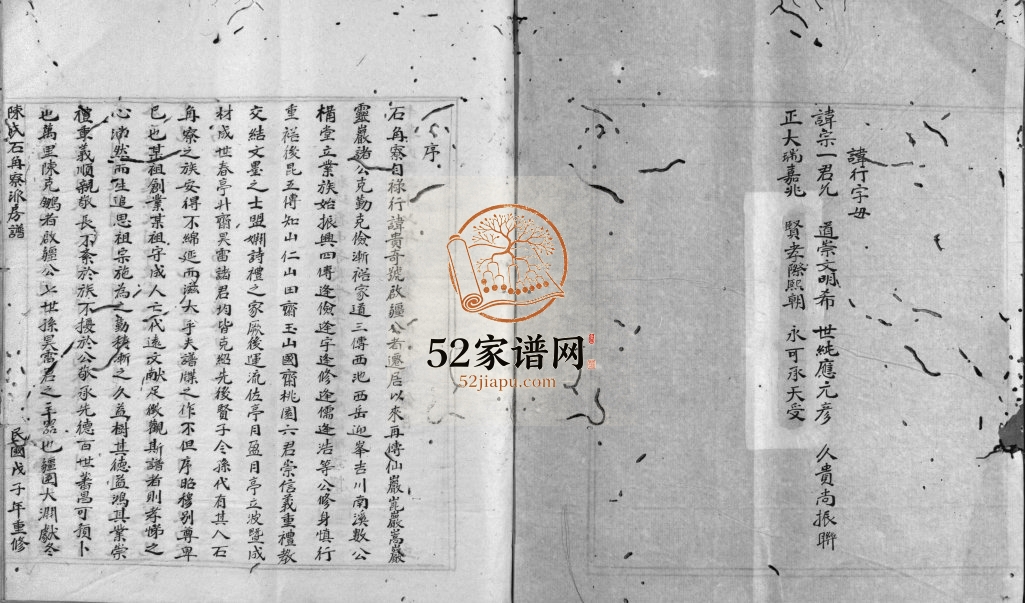 諱行字母
諱宗一君先 道崇文明布 世純應元彥 久貴尚振聯
正大瑞嘉兆 賢孝際熙朝 永可承天受
序
石角寮自祿行諱貴奇號啟疆公者遷居以來再傳仙巖崑巖嵩巖
靈巖諸公克勤克儉漸裕家道三傳西池西岳迎峯吉川南溪數公
構堂立業族始振興四傳逢儉逢宇逢修逢儒逢浩等公修身慎行
重裕後昆五傳知山仁山田齋玉山國齋桃園六君崇信義重禮教
交結文墨之士盟嫻詩禮之家厥後運流佐亭月盈月亭立波暨成
材成世春亭升齋昊雷諸君均皆克紹先後賢子令孫代有其人石
角寮之族安得不綿延而滋大乎夫譜牒之作不但序昭穆別尊卑
已也某祖創業某祖守成人亡代遠文献足徵觀斯譜者則孝悌之
心沛然而生追思祖宗施為之勤積漸之久益樹其德益鴻其業崇
禮重義順親敬長不紊於族不擾於公敬承先德百世蕃昌可預卜
也萬里陳克鵬者啟疆公上世孫昊雷君之 也疆圉大淵獻冬
陳氏石角寮派房譜
民國戊子年重修
52家谱网
52jiapu.com